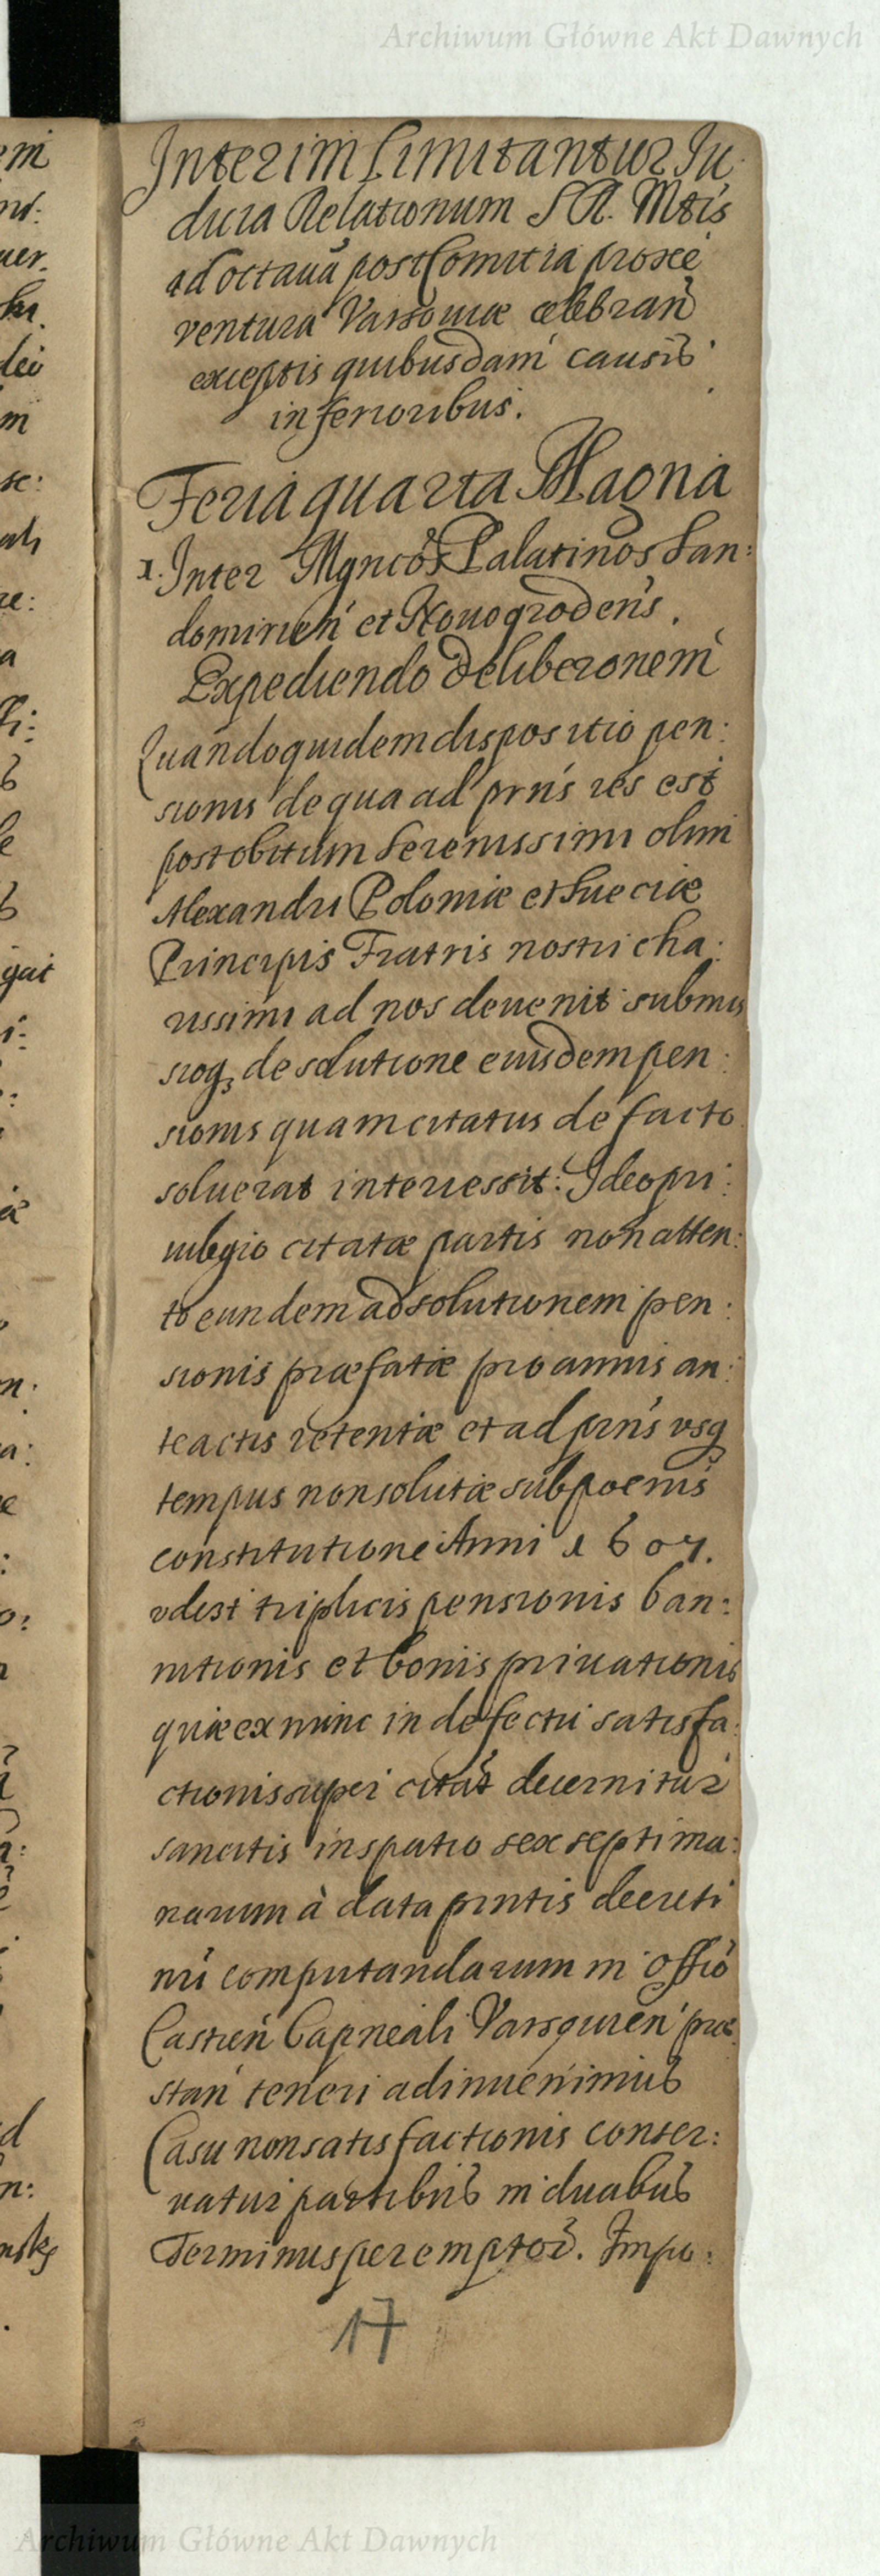 Archiwum Główne Akt Dawnych
Interim limitantur Ju
dicia Relationum S R. Mtis
ad octavā post Comitia proxē
ventura Varsoviæ celebran
exceptis quibusdam causis
inferioribus.
Feria quarta Magna
1. Inter Mgncos Palatinos San:
domirien et Novogrodens.
Expediendo deliberonem
Quandoquidem dispositio pen:
sionis de qua ad prns res est
post obitum Serenissimi olim
Alexandri Poloniæ et Sueciæ
Principis Fratris nostri cha:
rissimi ad nos devenit submis
sioq; de solutione eiusdem pen:
sionis quam citatus de facto
soluerat interiessit: Ideo pri:
vilegio citatæ partis non atten:
to eundem ad solutionem pen:
sionis præfatæ pro annis an:
teactis retentæ et ad prns vsq
tempus non solutæ sub poenis
constitutione Anni 1607.
vdest triplicis pensionis ban:
nitionis et bonis privationis
quæ ex nunc in defectu satisfa:
ctionis super citat decernitur
sancitis in spatio sex septima:
narum à data prntis decreti
nri computandarum in offio
Castren Capneali Varsavien præ
stan teneri adinvenimus
Casu non satisfactionis conser:
vatur partibus in duabus
Terminus peremptor. Impo:
17
Archiwum Główne Akt Dawnych